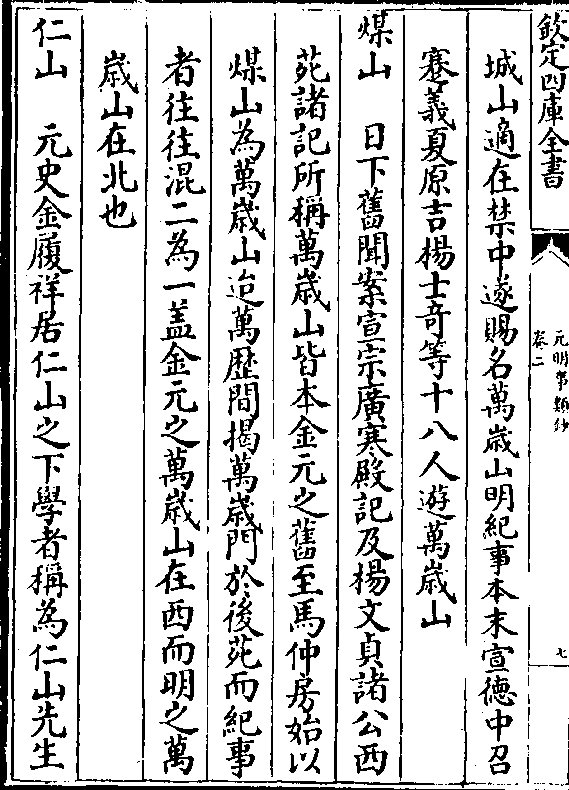 欽定四庫全書
元明事類鈔
卷二
七
城山適在禁中遂賜名萬歲山明紀事本末宣德中召
蹇義夏原吉楊士奇等十八人遊萬歲山
煤山　日下舊聞案宣宗廣寒殿記及楊文貞諸公西
苑諸記所稱萬歲山皆本金元之舊至馬仲房始以
煤山為萬歲山迨萬歷間揭萬歲門於後苑而紀事
者往往混二為一盖金元之萬歲山在西而明之萬
歲山在北也
仁山　元史金履祥居仁山之下學者稱為仁山先生